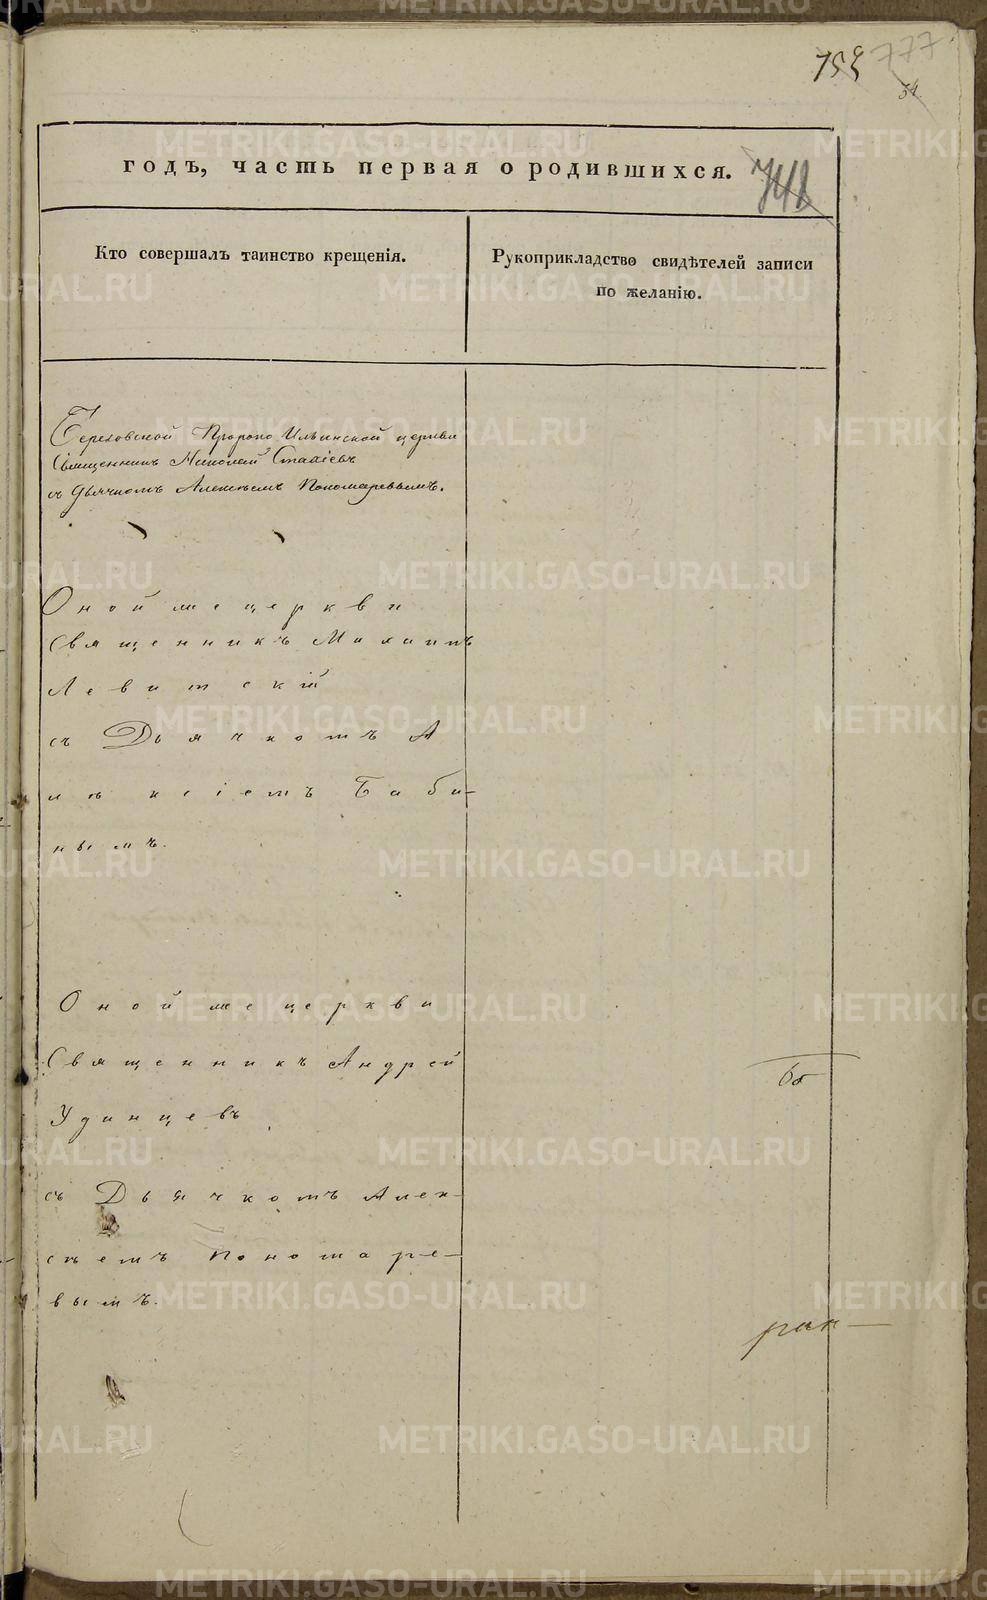 777
54
741
годъ, часть первая о родившихся.
Кто совершалъ таинство крещенія.
Рукоприкладство свидѣтелей записи
по желанію.
Пророко Ильинской церкви
Священникъ Николай
съ Дьячкомъ Алексѣемъ Пономаревымъ.
Оной же церкви
Священникъ
Левитскій
съ Дьячкомъ А
лексіемъ Баби-
нымъ.
Оной же церкви
Священникъ Андрей
Удинцевъ
съ Дьячкомъ Алек-
сѣемъ Пономаре-
вымъ.
METRIKI.GASO-URAL.RU